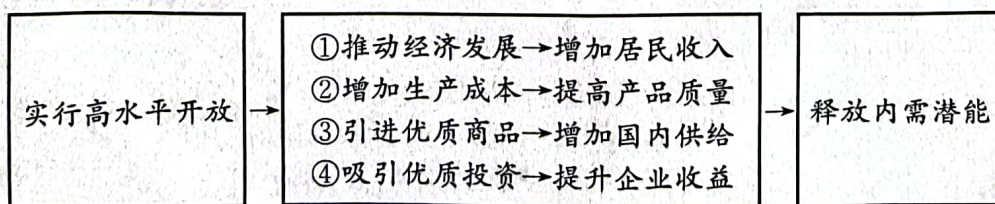 实行高水平开放
①推动经济发展→增加居民收入
②增加生产成本→提高产品质量
③引进优质商品→增加国内供给
④吸引优质投资→提升企业收益
释放内需潜能